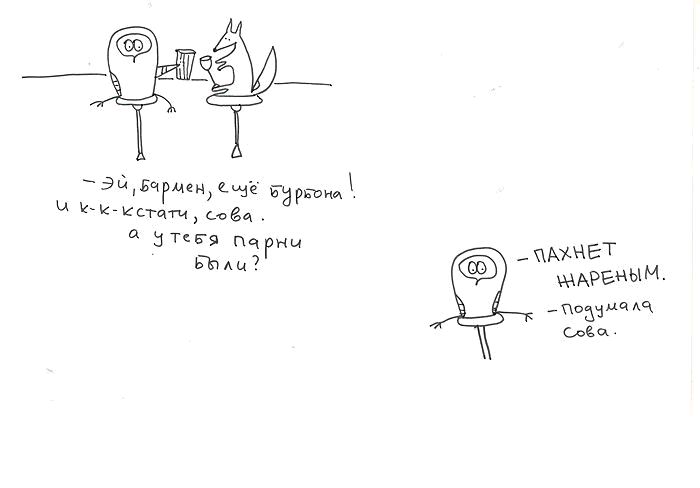 - эй, бармен, ещё бурбона!
и к-к-кстати, сова.
а у тебя парни
были?
- ПАХНЕТ
ЖАРЕНЫМ.
- подумала
сова.